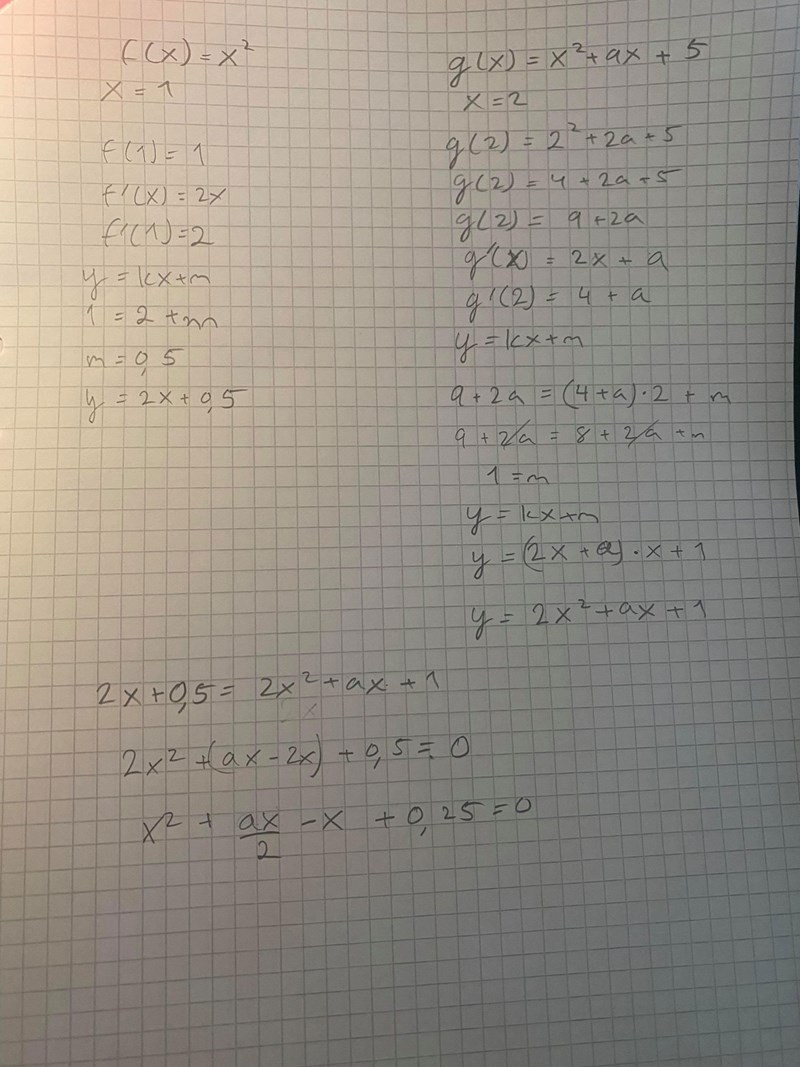 f(x) = x²
x = 1
f(1) = 1
f'(x) = 2x
f'(1) = 2
y = kx+m
1 = 2 + m
m = 0,5
y = 2x + 0,5
g(x) = x² + ax + 5
x = 2
g(2) = 2² + 2a + 5
g(2) = 4 + 2a + 5
g(2) = 9 + 2a
g'(x) = 2x + a
g'(2) = 4 + a
y = kx+m
9 + 2a = (4+a)·2 + m
9 + 2a = 8 + 2a + m
1 = m
y = kx+m
y = (2x + a)·x + 1
y = 2x² + ax + 1
2x + 0,5 = 2x² + ax + 1
2x² + (ax - 2x) + 0,5 = 0
x² + ax/2 - x + 0,25 = 0